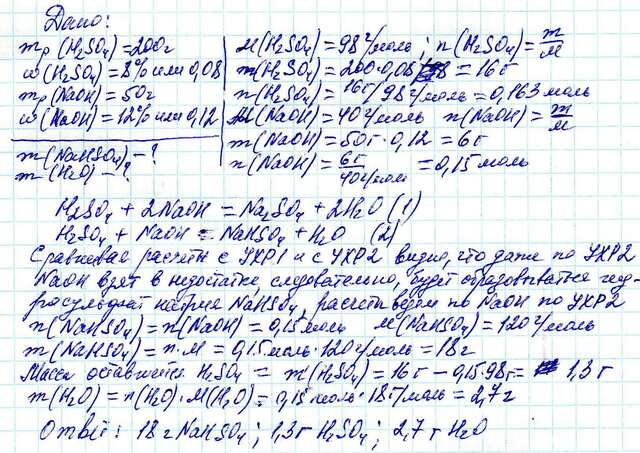 Дано:
mр(H₂SO₄)=200г
ω(H₂SO₄)=8% или 0,08
mр(NaOH)=50г
ω(NaOH)=12% или 0,12
m(NaHSO₄)-?
m(H₂O)-?
M(H₂SO₄)=98г/моль; n(H₂SO₄)=m/M
m(H₂SO₄)=200·0,08=16г
n(H₂SO₄)=16г/98г/моль=0,163 моль
M(NaOH)=40г/моль n(NaOH)=m/M
m(NaOH)=50г·0,12=6г
n(NaOH)=6г/40г/моль=0,15 моль
H₂SO₄+2NaOH=Na₂SO₄+2H₂O (1)
H₂SO₄+NaOH=NaHSO₄+H₂O (2)
Сравнивая расчёты с УХР1 и с УХР2 видно, что даже по УХР2
NaOH взят в недостатке следовательно, будет образовываться гид-
росульфат натрия NaHSO₄, расчёт ведём по NaOH по УХР2
n(NaHSO₄)=n(NaOH)=0,15моль M(NaHSO₄)=120г/моль
m(NaHSO₄)=n·M=0,15моль·120г/моль=18г
Масса оставшейся H₂SO₄ = m(H₂SO₄)=16г-0,15·98г= 1,3г
m(H₂O)=n(H₂O)·M(H₂O)=0,15моль·18г/моль=2,7г
Ответ: 18г NaHSO₄; 1,3г H₂SO₄; 2,7г H₂O